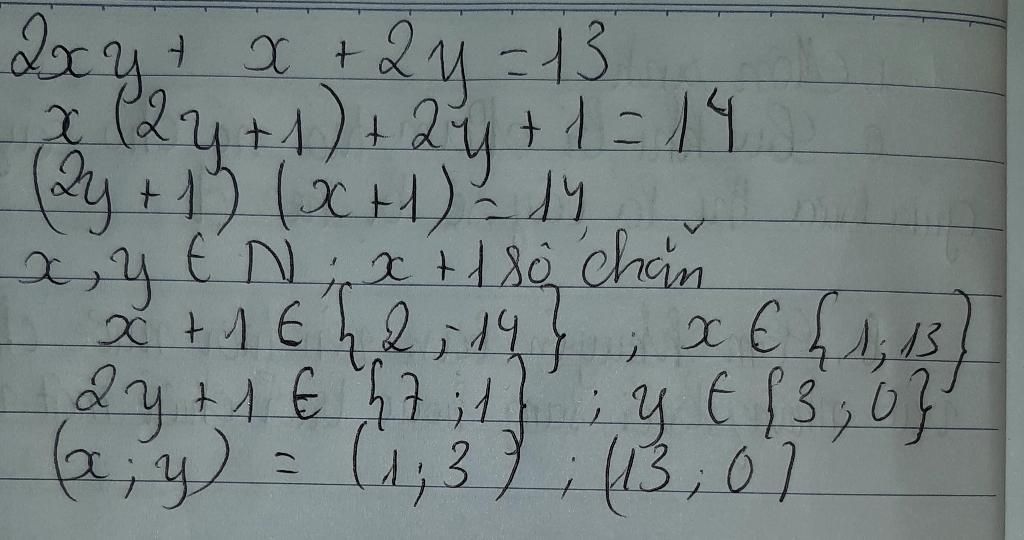 2xy + x + 2y = 13
x (2y + 1) + 2y + 1 = 14
(2y + 1) (x + 1) = 14
x, y ∈ N ; x + 1 số chẵn
x + 1 ∈ {2 ; 14} ; x ∈ {1 ; 13}
2y + 1 ∈ {7 ; 1} ; y ∈ {3 ; 0}
(x ; y) = (1 ; 3) ; (13 ; 0)